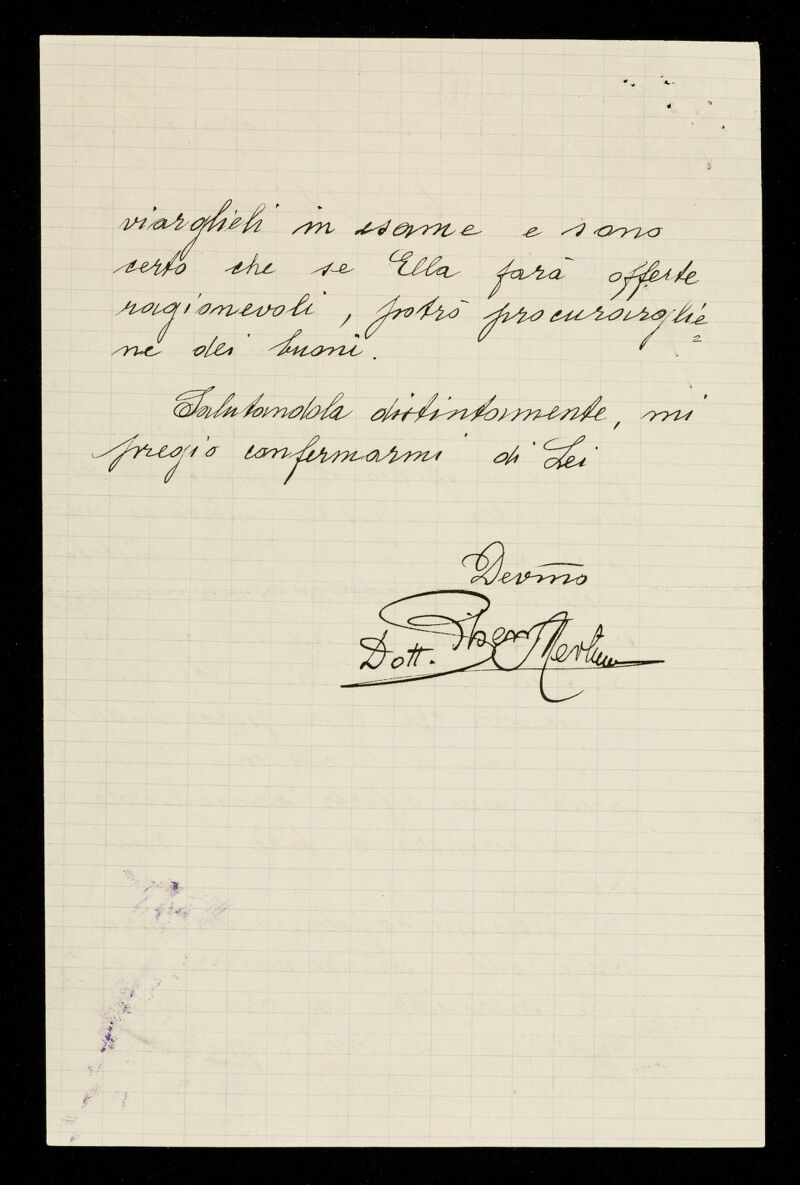 viarglieli in esame e sono
certo che se Ella farà offerte
ragionevoli, potrò procurarglie=
ne dei buoni.
Salutandola distintamente, mi
pregio confermarmi di Lei
Devm̅o
Dott.